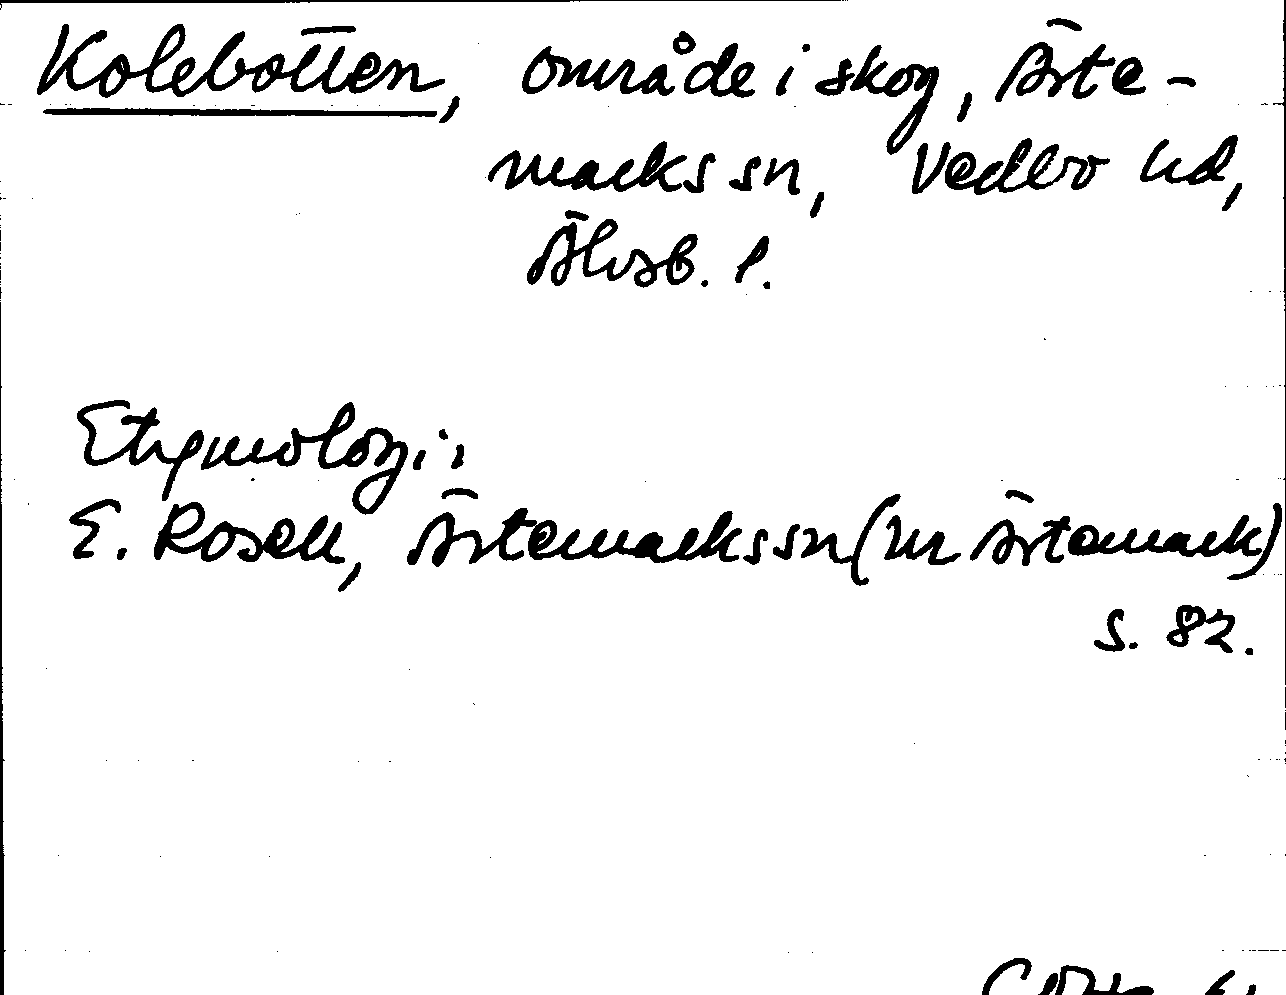 Kolebotten, område i skog, Ärte-
marks sn, Vedbo hd,
Älvsb. l.
Etymologi:
E. Rosell, Ärtemarks sn (ur Ärtemark)
s. 82.